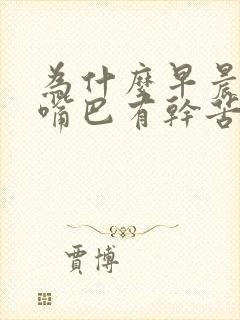 為什麼早晨
嘴巴有幹苦
賈博